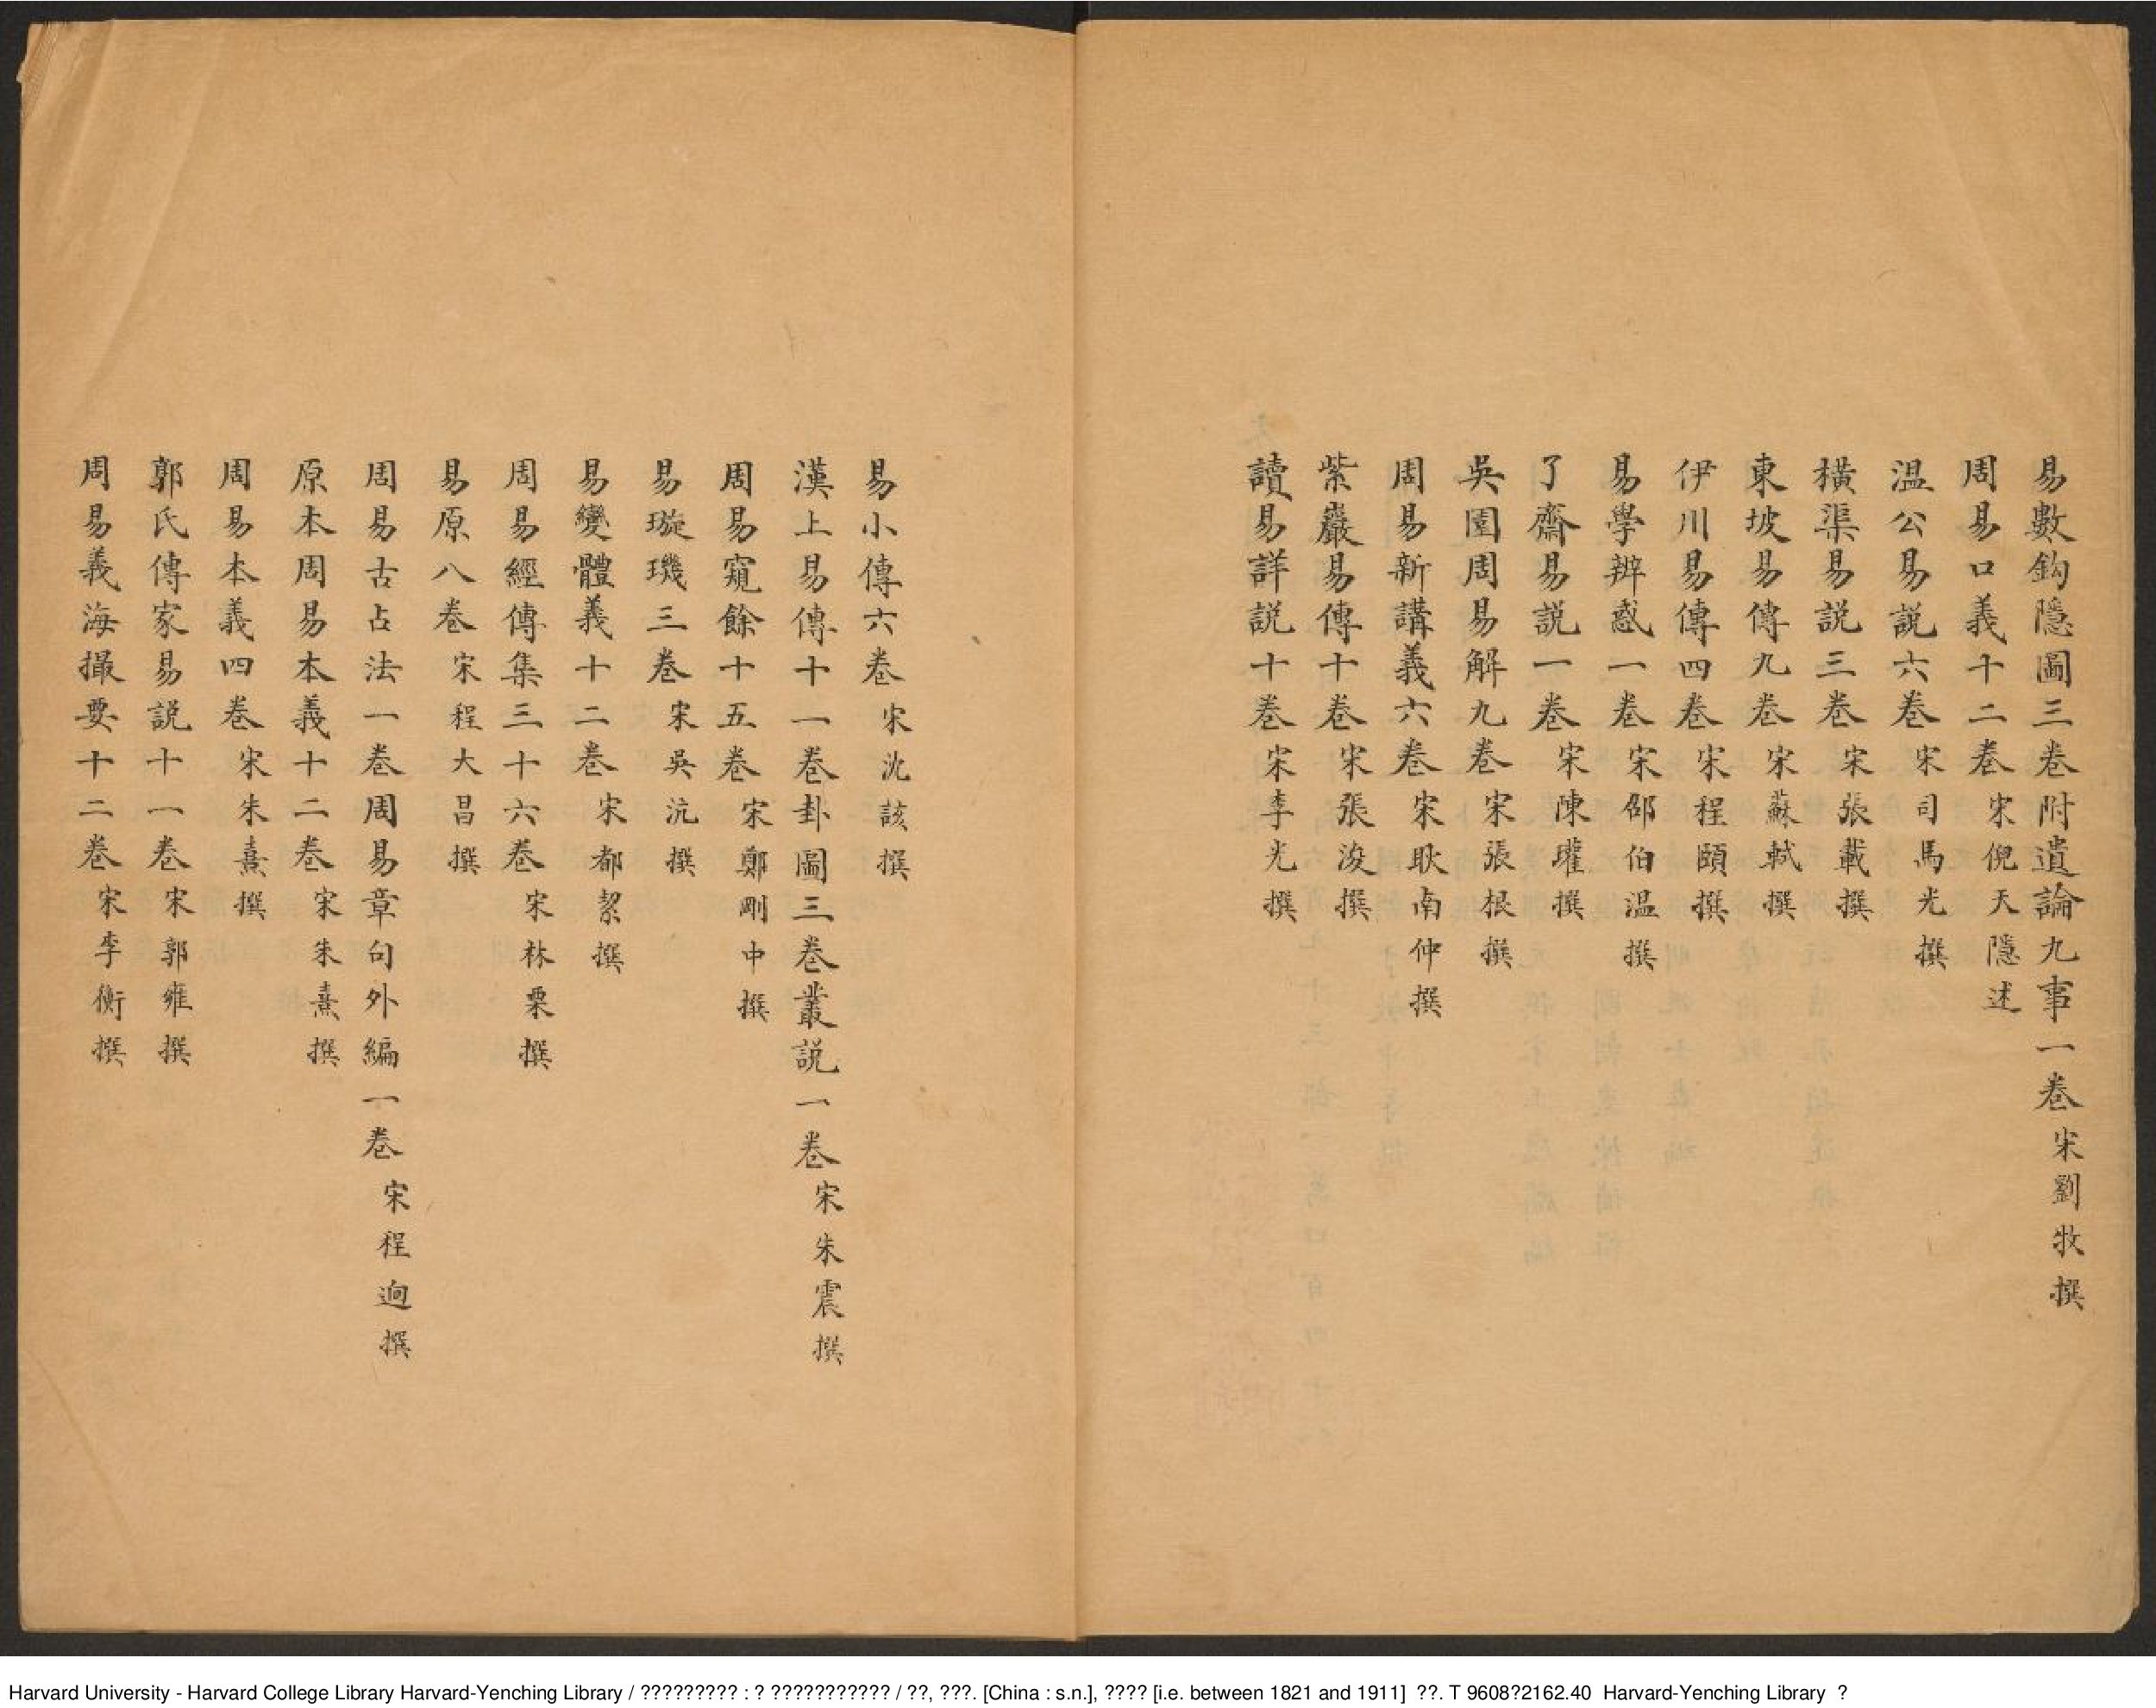 易數鈎隱圖三卷附遺論九事一卷宋劉牧撰
周易口義十二卷宋倪天隱述
温公易説六卷宋司馬光撰
橫渠易説三卷宋張載撰
東坡易傳九卷宋蘇軾撰
伊川易傳四卷宋程頤撰
易學辨惑一卷宋邵伯温撰
了齋易説一卷宋陳瓘撰
吳園周易解九卷宋張根撰
周易新講義六卷宋耿南仲撰
紫巖易傳十卷宋張浚撰
讀易詳説十卷宋李光撰
易小傳六卷宋沈該撰
漢上易傳十一卷卦圖三卷叢説一卷宋朱震撰
周易窺餘十五卷宋鄭剛中撰
易璇璣三卷宋吳沆撰
易變體義十二卷宋都絜撰
周易經傳集三十六卷宋林栗撰
易原八卷宋程大昌撰
周易古占法一卷周易章句外編一卷宋程迥撰
原本周易本義十二卷宋朱熹撰
周易本義四卷宋朱熹撰
郭氏傳家易説十一卷宋郭雍撰
周易義海撮要十二卷宋李衡撰
Harvard University - Harvard College Library Harvard-Yenching Library / ????????? : ? ??????????? / ??, ???. [China : s.n.], ???? [i.e. between 1821 and 1911] ??. T 9608?2162.40 Harvard-Yenching Library ?